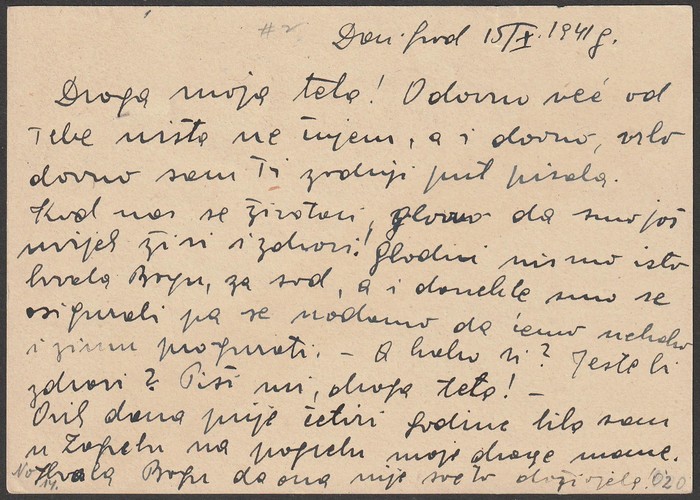 # 2
Dar. Grad 15/X. 1941 g.
Draga moja teta! Odavno već od
Tebe ništa ne čujem, a i davno, vrlo
davno sam Ti zadnji put pisala.
Kod nas se životari, glavno da smo još
uvijek živi i zdravi! Gladni nismo isto
hvala Bogu, za sad, a i donekle smo se
osigurali pa se nadamo da ćemo nekako
i zimu progurati. – A kako si? Jeste li
zdravi? Piši mi, draga teta! –
Ovih dana prije četiri godine bila sam
u Zagrebu na pogrebu moje drage mame.
Hvala Bogu da ona nije sve to doživjela!
No 14.
020